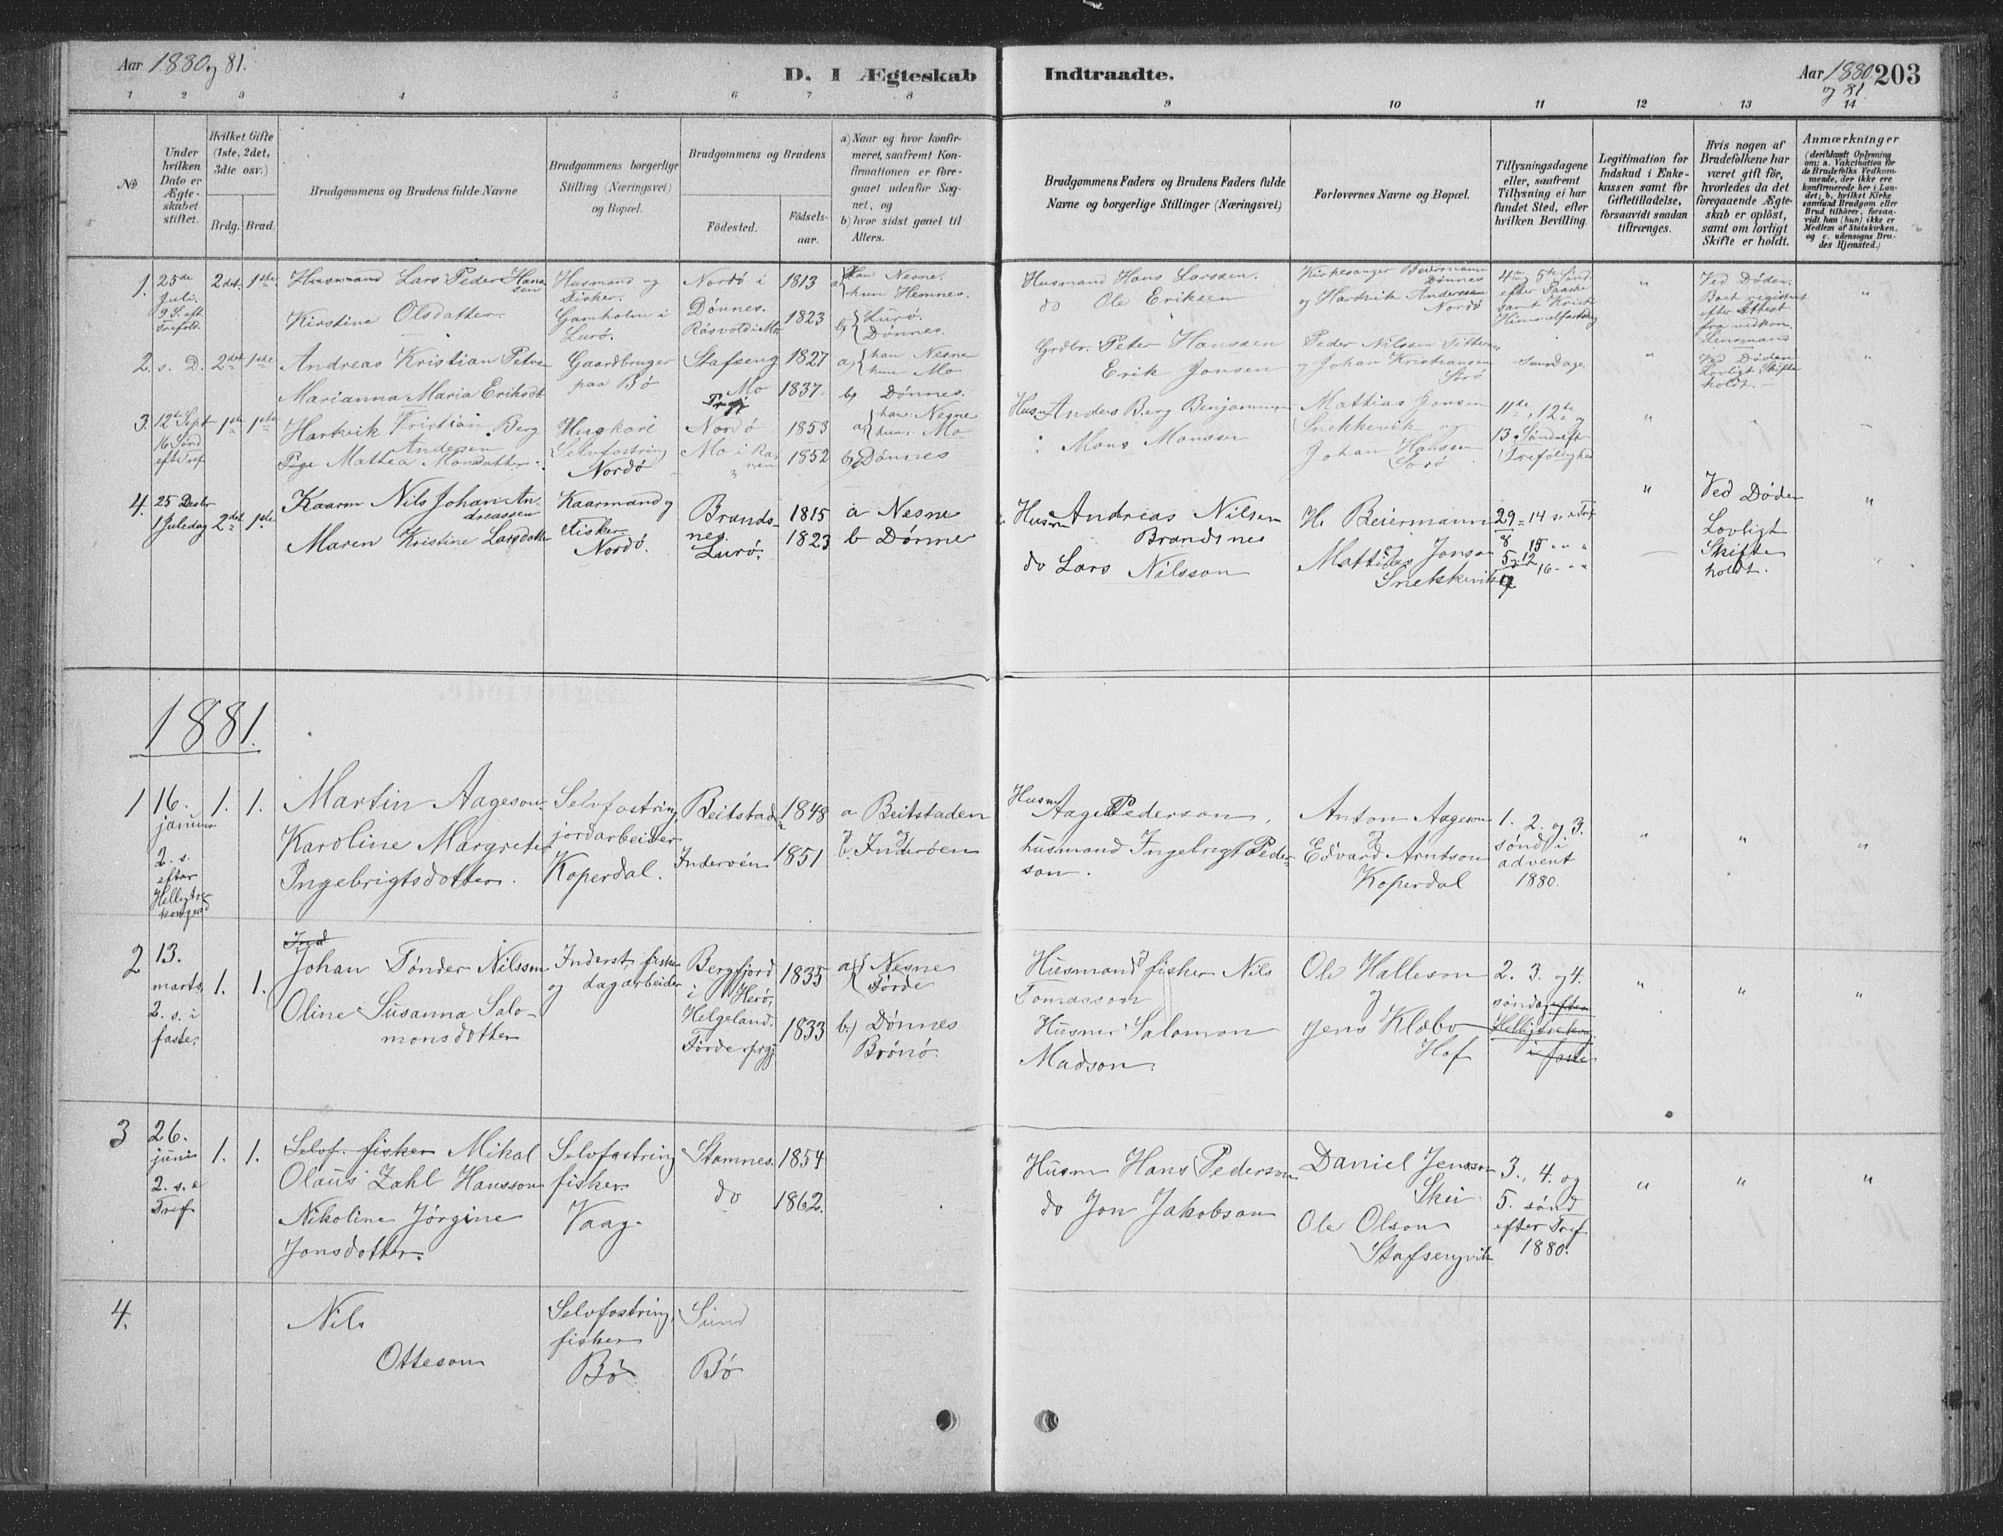 Aar 1880 og 81.
D. I Ægteskab Indtraadte.
Aar 1880 og 81 203
1 2 3 4 5 6 7 8 9 10 11 12 13 14
No
Under hvilken Dato er Ægteskabet stiftet.
Hvilket Gifte (1ste, 2det, 3die osv.)
Brdg. Brud.
Brudgommens og Brudens fulde Navne
Brudgommens borgerlige Stilling (Næringsvei) og Bopæl.
Brudgommens og Brudens
Fødested.
Fødselsaar.
a) Naar og hvor konfirmeret, saafremt Konfirmationen er foregaaet udenfor Sognet, og
b) hvor sidst gaaet til Alters.
Brudgommens Faders og Brudens Faders fulde Navne og borgerlige Stillinger (Næringsvei)
Forlovernes Navne og Bopæl.
Tillysningsdagene eller, saafremt Tillysning ei har fundet Sted, efter hvilken Bevilling.
Legitimation for Indskud i Enkekassen samt for Giftetilladelse, forsaavidt saadan tiltrænges.
Hvis nogen af Brudefolkene har været gift før, hvorledes da det foregaaende Ægteskab er opløst, samt om lovligt Skifte er holdt.
Anmærkninger
(deriblandt Oplysning om: a. Vakcination for de Brudefolks Vedkommende, der ikke ere konfirmerede her i Landet; b, hvilket Kirkesamfund Brudgom eller Brud tilhører, forsaavidt han (hun) ikke er Medlem af Statskirken, og c. udensogns Brudes Hjemsted.)
1. 25de Juli. 9 S. eft Trefold. 2det 1ste
Husmand Lars Peder Hansen
Kirstine Olsdatter
Husmand og Fisker. Gamholm i Lurö.
Nordö i Dönnes. 1813
Røsvold i Mo 1823
a) han Nesne. hun Hemnes.
b) Lurö. Dönnes.
Husmand Hans Larssen.
do Ole Eriksen
Kirkesanger Beiermann Dönnes
og Hartvik Andersen Nordö
4de og 5te Sönd. efter Paaske samt Kristi Himmelfartsdag
"
Ved Døden. Boet registreret efter Attest fra vedkom. Lensmand
"
2. s. D. 2det 1ste
Andreas Kristian Petersen
Marianna Maria Eriksdt
Gaardbruger paa Bö
Stafseng 1827
Mo 1837
a) han Nesne hun Mo
b) Dönnes.
Grdbr. Peter Hanssen
Erik Jonsen
Peder Nilsen
og Johan Kristiansen
samme Dage
"
Ved Døden Lovligt Skifte holdt.
"
3. 12te Sept 16 Sönd efter Tref 1ste 1ste
Hartvik Kristian Berg Andersen
Pige Mathea Monsdatter
Huskarl Selvfostring Nordö
Nordö 1853
Mo i Ranen 1852
a) han Nesne hun Mo
b) Dönnes
Husm Anders Berg Benjaminsen
Mons Monssen
Mattias Jonsen Snekkevik og
Johan Hanssen
11te, 12te og 13 Sönd. eft Trefoligheds
"
"
4. 25 Decbr 1 Juledag 2det 1ste
Kaarm Nils Johan Andreassen
Maren Kristine Larsdatter
Kaarmand og Fisker Nordö.
Brandsnes. 1815
Lurö. 1823
a Nesne
b Dönnes
Husm Andreas Nilsen Brandsnes
do Lars Nilsson
H. Beiermann
Mattias Jonsen Snekkevik
"
Ved Døden Lovligt Skifte holdt.
"
1881.
1 16. januar 2. s. efter Helligtrekongersd 1. 1.
Martin Aageson
Karoline Margrete Ingebrigtsdotter.
Selvfostring jordarbeider Koperdal.
Beitstad 1848
Inderöen 1851
a Beitstaden
b. Inderöen
Husm Aage Pederson.
husmand Ingebrigt Pederson.
Anton Aageson
og Edvard Arntson Koperdal
1. 2. og 3. sönd i advent 1880.
"
"
"
2 13. marts, 2. s. i faste, 1. 1.
Johan Tönder Nilsson
Oline Susanna Salomonsdotter
Inderst, fisker og dagarbeider
Bergfjord i Herö, Helgeland. 1835
Förde prgj 1833
a) Nesne Förde
b.) Dönnes Brönö.
Husmand og fisker Nils Tomasson
Husm Salomon Madson.
Ole Halleson
og Jens Klæbo Hof
2. 3. og 4. söndag efter Helligtrekong i faste
"
"
"
3 26. juni 2. s. e Tref 1. 1.
Selvf. fisker Mikal Olaus Zahl Hansson
Nikoline Jörgine Jonsdotter.
Selvfostring fisker Vaag.
Stamnes. 1854
do 1862.
Husm Hans Pederson
do Jon Jakobson
Daniel Jensson Skei.
Ole Olson Stafsengvik
3., 4. og 5. sönd efter Tref 1880.
"
"
"
4.
Nils Otteson
Selvfostring, fisker Bö
Sund
Bö